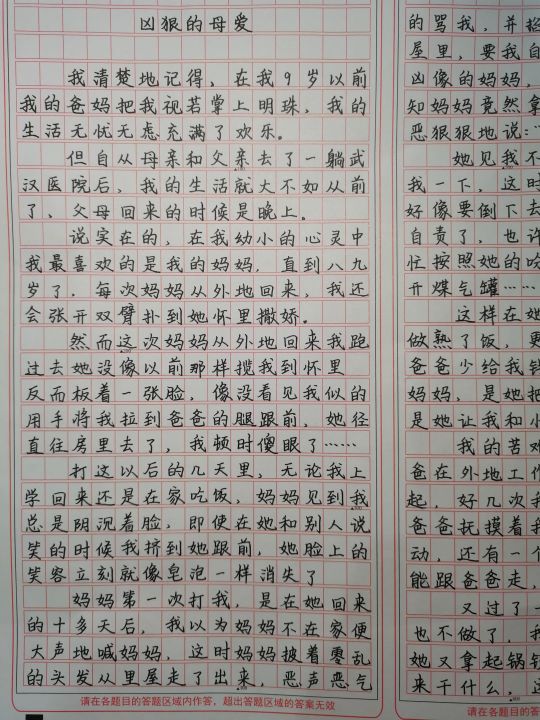 凶狠的母爱
我清楚地记得，在我9岁以前
我的爸妈把我视若掌上明珠，我的
生活无忧无虑充满了欢乐。
但自从母亲和父亲去了一躺武
汉医院后，我的生活就大不如从前
了、父母回来的时候是晚上。
说实在的，在我幼小的心灵中
我最喜欢的是我的妈妈，直到八九
岁了，每次妈妈从外地回来，我还
会张开双臂扑到她怀里撒娇。
然而这次妈妈从外地回来我跑
过去她没像以前那样揽我到怀里
反而板着一张脸，像没看见我似的
用手将我拉到爸爸的腿跟前，她径
直往房里去了，我顿时傻眼了……
打这以后的几天里，无论我上
学回来还是在家吃饭，妈妈见到我
总是阴沉着脸，即使在她和别人说
笑的时候我挤到她跟前，她脸上的
笑容立刻就像皂泡一样消失了
妈妈第一次打我，是在她回来
的十多天后，我以为妈妈不在家便
大声地喊妈妈，这时妈妈披着零乱
的头发从里屋走了出来，恶声恶气
请在各题目的答题区域内作答，超出答题区域的答案无效
的骂我，并招
屋里，要我自
凶像的妈妈，
知妈妈竟然拿
恶狠狠地说：“
她见我不
我一下，这时
好像要倒下去
自责了，也许
忙按照她的吩
开煤气罐……
这样在她
做熟了饭，更
爸爸少给我钱
妈妈，是她把
是她让我和小
我的苦难
爸在外地工作
起，好几次我
爸爸抚摸着我
动，还有一个
能跟爸爸走，
又过了一
也不做了，我
她又拿起锅铲
来干什么，这
请在各题目的